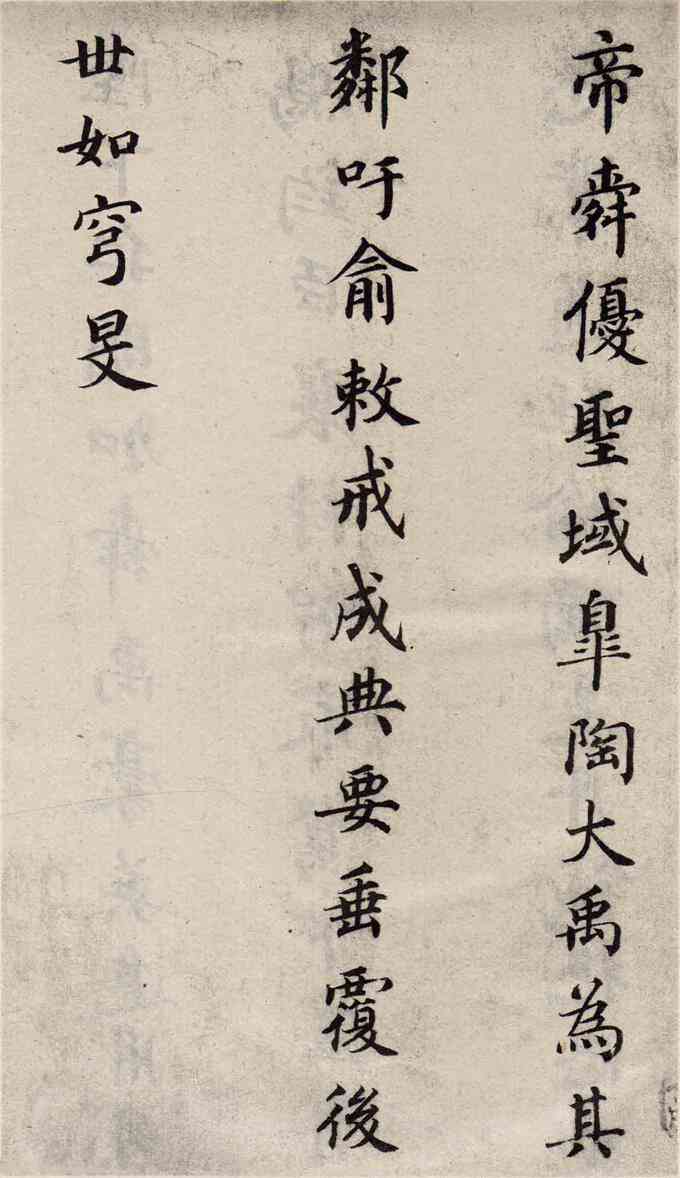 帝舜優聖域皐陶大禹為其
鄰吁俞敕戒成典要垂覆後
世如穹旻